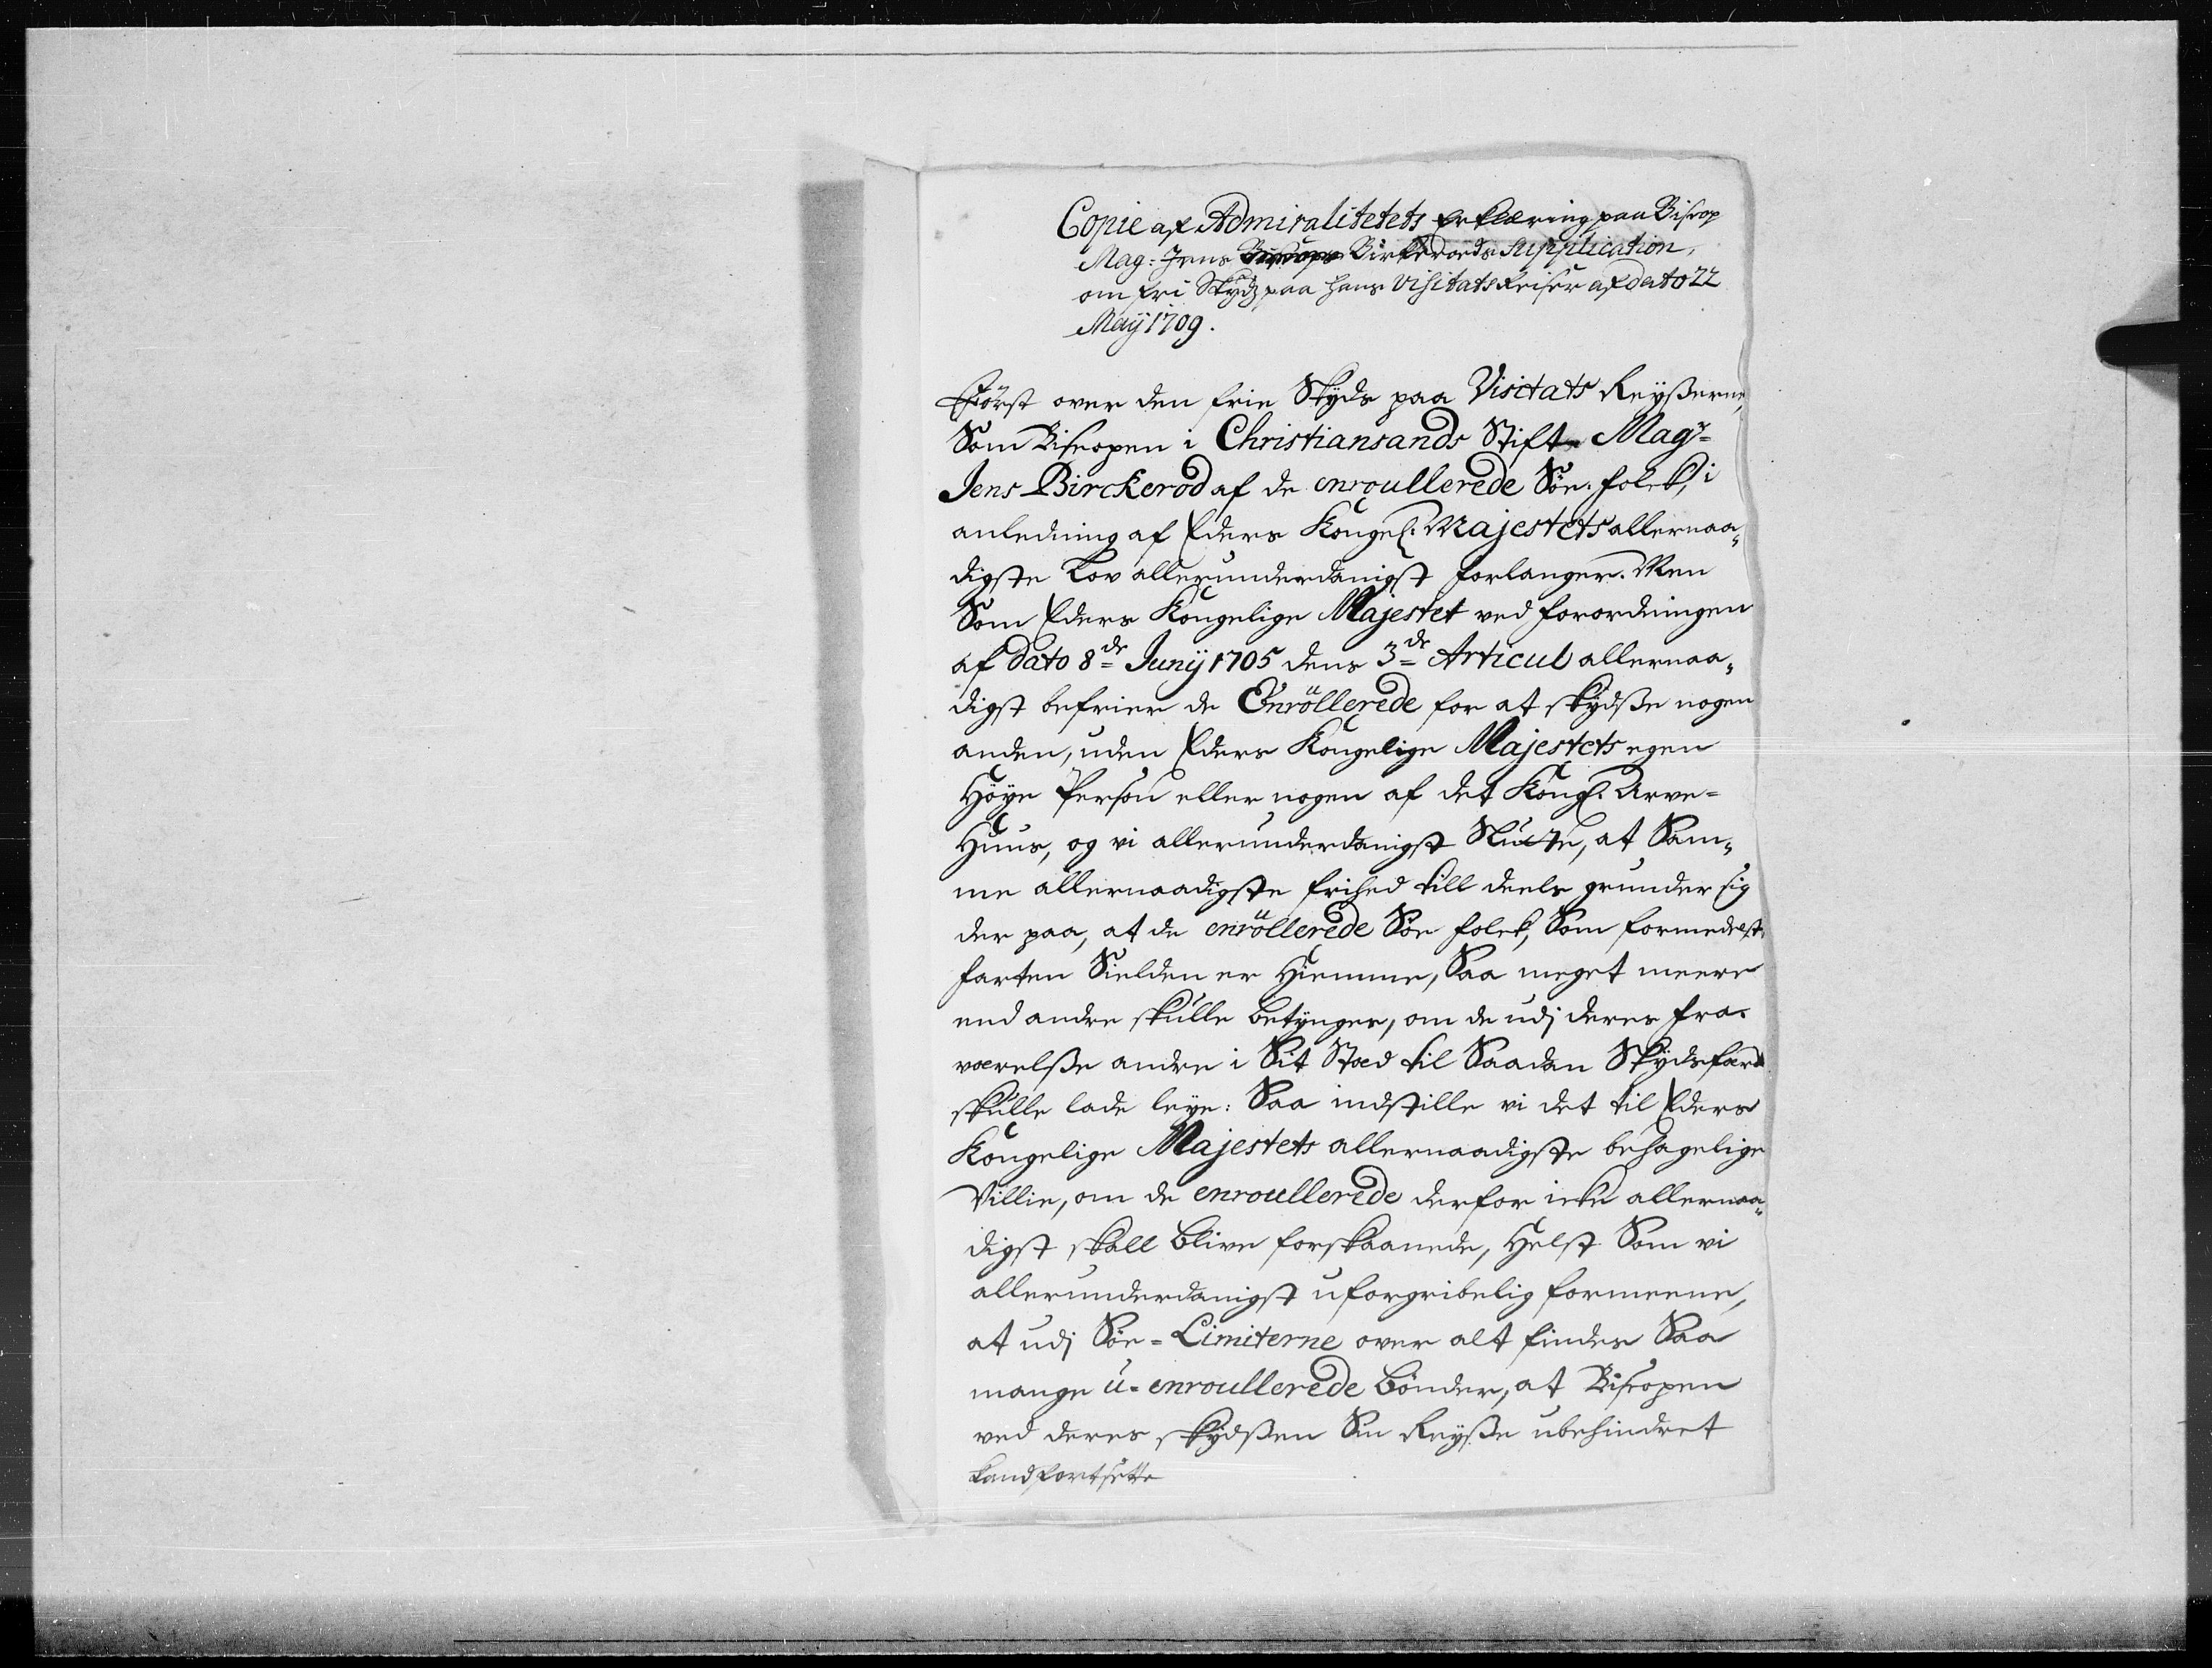 Copie af Admiralitetets Erklæring paa Biscop
Mag: Jens Biscops Birkerods Supplication,
om fri Skydz paa hans Visitats Reiser af dato 22
Maij 1709.
Först over den frie Skyds paa Visitats Reyßerne,
Som Biscopen i Christiansands Stift Magr=
Jens Birckerod af de enroullerede Söe-folck, i
anledning af Eders Kongel: Majestets allernaa„
digste Lov allerunderdanigst forlanger. Men
Som Eders Kongelige Majestet ved forordningen
af dato 8de Junij 1705 dens 3de Articul allernaa„
digst befrier de Enröllerede for at skydße nogen
anden, uden Eders Kongelige Majestets egen
Höye Person eller nogen af det Kongl: Arve=
Huus, og vi allerunderdanigst , at Sam„
me allernaadigste frihed till deels grunder sig
der paa, at de enröllerede Söe folck, Som formedelst
farten Sielden er Hiemme, Saa meget meere
end andre skulle betynges, om de udj deres fra-
værelße andre i Sit Stæd til Saadan Skydsfærd
skulle lade leye: Saa indstille vi det til Eders
Kongelige Majestets allernaadigste behagelige
Villie, om de enroullerede derfor icke allernaa„
digst skall blive forskaanede, Helst Som vi
allerunderdanigst uforgribelig formeene,
at udj Söe=Limiterne over alt findes Saa
mange u=enroullerede bönder, at Biscopen
ved deres skydßen Sin Reyße ubehindret
kand fortsette